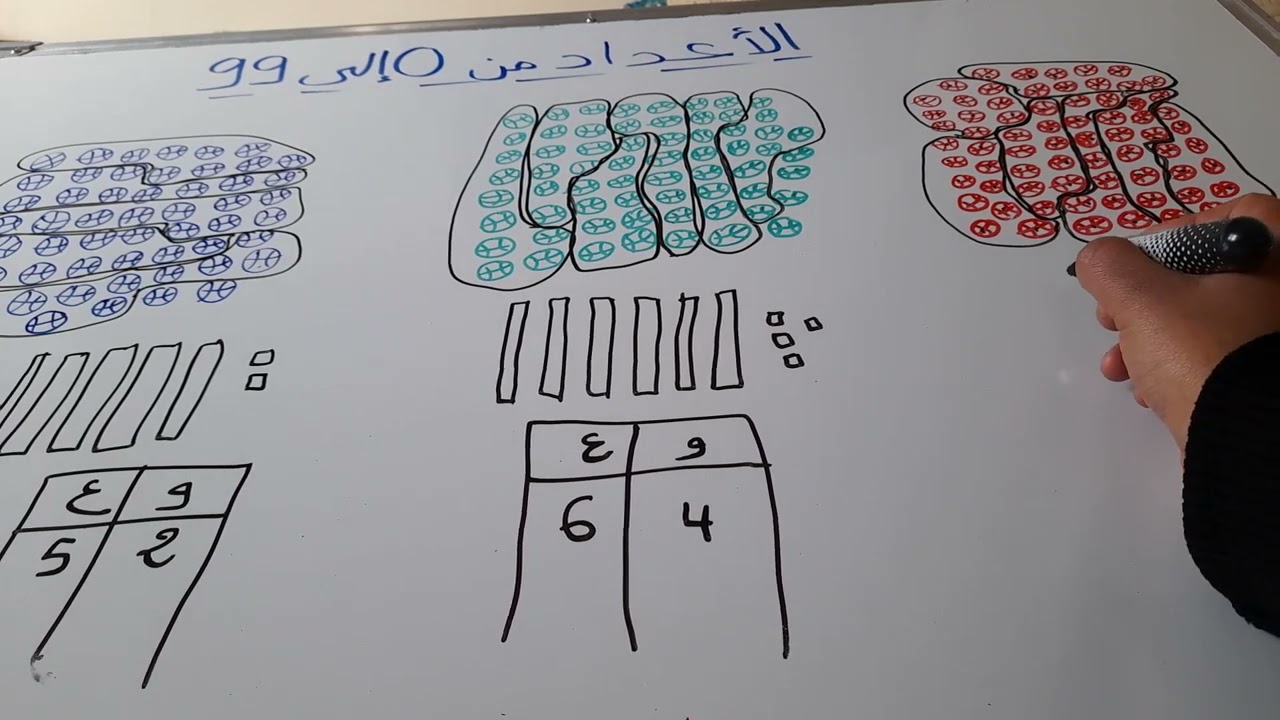 الأعداد من 0 إلى 99
ع و
6 4
ع و
5 2